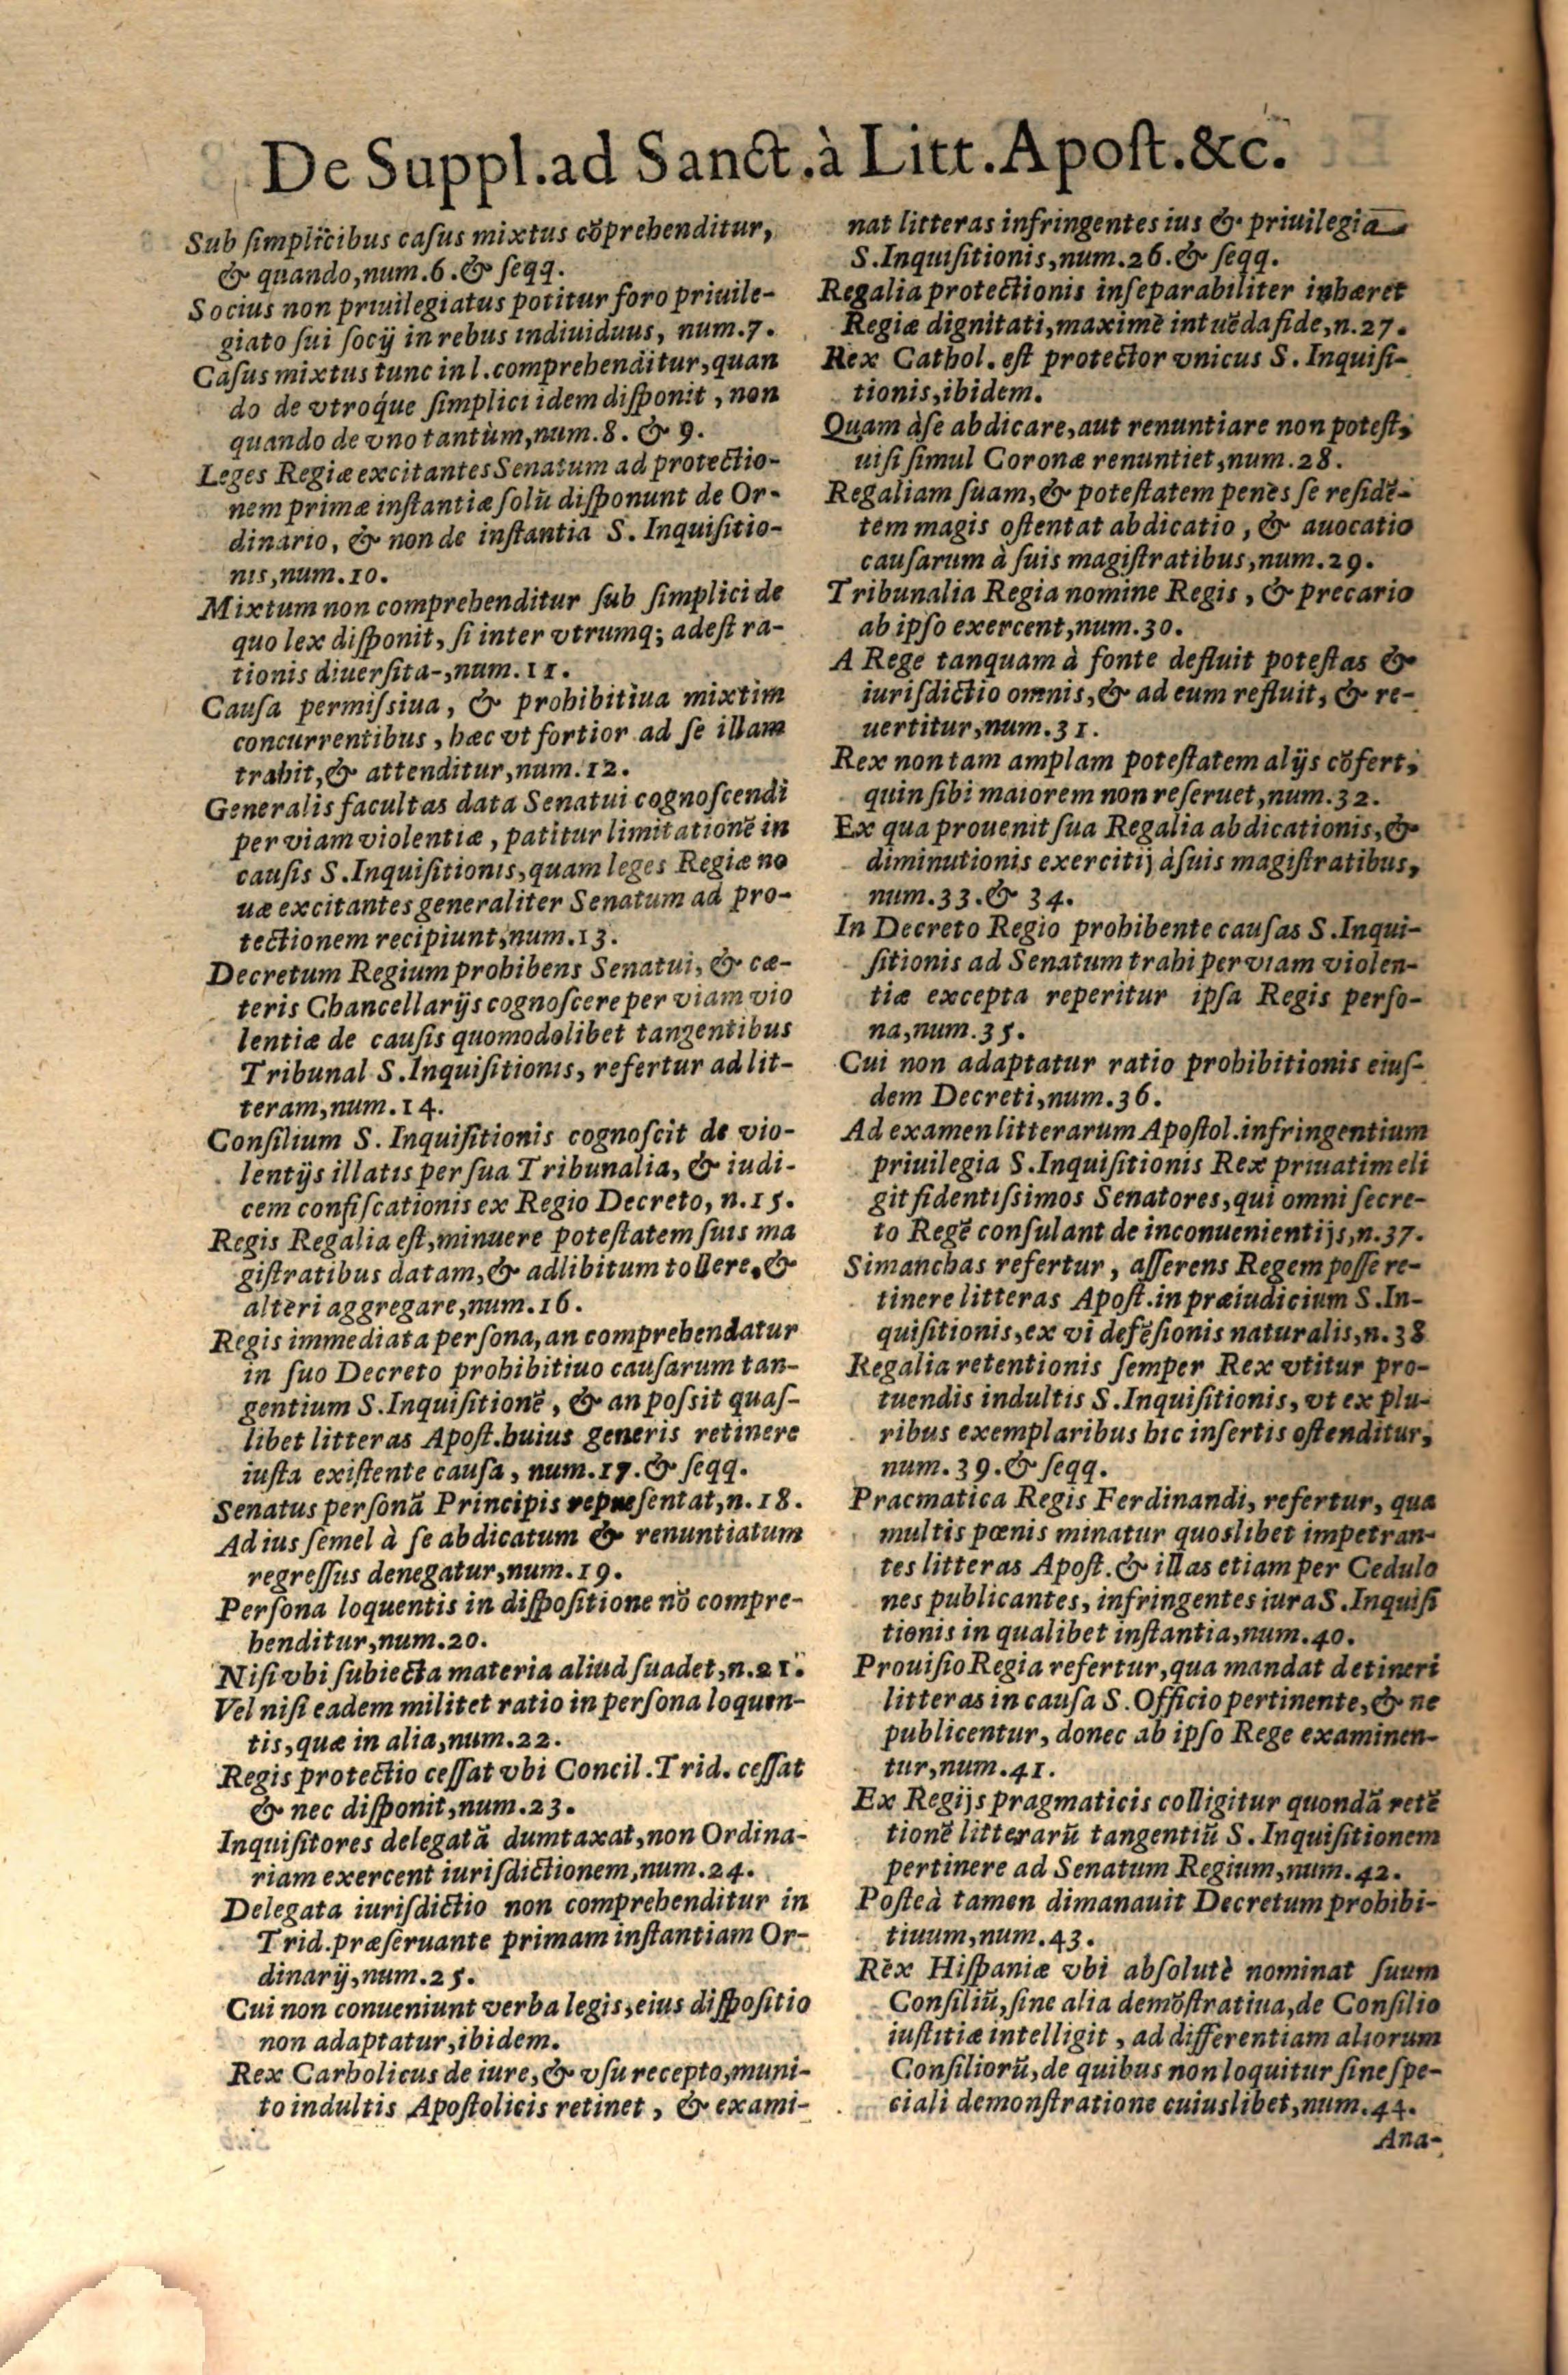 De Suppl.ad Sanct.à Litt.Apoſt.&c.
Sub ſimplicibus caſus mixtus cõprehenditur,
& quando,num.6.& ſeqq.
Socius non priuilegiatus potitur foro priuile-
giato ſui ſocij in rebus indiuiduus, num.7.
Caſus mixtus tunc in l.comprehenditur,quan
do de vtroque ſimplici idem diſponit, non
quando de vno tantùm,num.8. & 9.
Leges Regiæ excitantes Senatum ad protectio-
nem primæ inſtantiæ ſolũ diſponunt de Or-
dinario, & non de inſtantia S. Inquiſitio-
nis,num.10.
Mixtum non comprehenditur ſub ſimplici de
quo lex diſponit, ſi inter vtrumq; adeſt ra-
tionis diuerſita-,num.11.
Cauſa permiſsiua, & prohibitiua mixtim
concurrentibus, hæc vt fortior ad ſe illam
trahit,& attenditur,num.12.
Generalis facultas data Senatui cognoſcendi
per viam violentiæ, patitur limitationẽ in
cauſis S.Inquiſitionis,quam leges Regiæ no
uæ excitantes generaliter Senatum ad pro-
tectionem recipiunt,num.13.
Decretum Regium prohibens Senatui, & cæ-
teris Chancellarijs cognoſcere per viam vio
lentiæ de cauſis quomodolibet tangentibus
Tribunal S.Inquiſitionis, refertur ad lit-
teram,num.14.
Conſilium S. Inquiſitionis cognoſcit de vio-
lentijs illatis per ſua Tribunalia, & iudi-
cem confiſcationis ex Regio Decreto, n.15.
Regis Regalia eſt,minuere poteſtatem ſuis ma
giſtratibus datam,& adlibitum tollere,&
alteri aggregare,num.16.
Regis immediata perſona,an comprehendatur
in ſuo Decreto prohibitiuo cauſarum tan-
gentium S.Inquiſitionẽ, & an poſsit quaſ-
libet litteras Apoſt.huius generis retinere
iuſta exiſtente cauſa, num.17.& ſeqq.
Senatus perſonã Principis repreſentat,n.18.
Ad ius ſemel à ſe abdicatum & renuntiatum
regreſſus denegatur,num.19.
Perſona loquentis in diſpoſitione nõ compre-
henditur,num.20.
Niſi vbi ſubiecta materia aliud ſuadet,n.21.
Vel niſi eadem militet ratio in perſona loquen-
tis,quæ in alia,num.22.
Regis protectio ceſſat vbi Concil.Trid. ceſſat
& nec diſponit,num.23.
Inquiſitores delegatã dumtaxat,non Ordina-
riam exercent iuriſdictionem,num.24.
Delegata iuriſdictio non comprehenditur in
Trid.præſeruante primam inſtantiam Or-
dinarij,num.25.
Cui non conueniunt verba legis,eius diſpoſitio
non adaptatur,ibidem.
Rex Carholicus de iure,& vſu recepto,muni-
to indultis Apoſtolicis retinet, & exami-
nat litteras infringentes ius & priuilegia
S.Inquiſitionis,num.26.& ſeqq.
Regalia protectionis inſeparabiliter inhæret
Regiæ dignitati,maximè intuẽda fide,n.27.
Rex Cathol. eſt protector vnicus S. Inquiſi-
tionis,ibidem.
Quam àſe abdicare,aut renuntiare non poteſt,
uiſi ſimul Coronæ renuntiet,num.28.
Regaliam ſuam,& poteſtatem penès ſe reſidẽ-
tem magis oſtentat abdicatio, & auocatio
cauſarum à ſuis magiſtratibus,num.29.
Tribunalia Regia nomine Regis, & precario
ab ipſo exercent,num.30.
A Rege tanquam à fonte defluit poteſtas &
iuriſdictio omnis,& ad eum refluit, & re-
uertitur,num.31.
Rex non tam amplam poteſtatem alijs cõfert,
quin ſibi maiorem non reſeruet,num.32.
Ex qua prouenit ſua Regalia abdicationis,&
diminutionis exercitij àſuis magiſtratibus,
num.33.& 34.
In Decreto Regio prohibente cauſas S.Inqui-
ſitionis ad Senatum trahi per viam violen-
tiæ excepta reperitur ipſa Regis perſo-
na,num.35.
Cui non adaptatur ratio prohibitionis eiuſ-
dem Decreti,num.36.
Ad examen litterarum Apoſtol.infringentium
priuilegia S.Inquiſitionis Rex priuatim eli
git fidentiſsimos Senatores,qui omni ſecre-
to Regẽ conſulant de inconuenientijs,n.37.
Simanchas refertur, aſſerens Regem poſſe re-
tinere litteras Apoſt.in præiudicium S.In-
quiſitionis,ex vi defẽſionis naturalis,n.38
Regalia retentionis ſemper Rex vtitur pro-
tuendis indultis S.Inquiſitionis, vt ex plu-
ribus exemplaribus hic inſertis oſtenditur,
num.39.& ſeqq.
Pracmatica Regis Ferdinandi, refertur, qua
multis pœnis minatur quoslibet impetran-
tes litteras Apoſt.& illas etiam per Cedulo
nes publicantes, infringentes iura S.Inquiſi
tionis in qualibet inſtantia,num.40.
Prouiſio Regia refertur,qua mandat detineri
litteras in cauſa S.Officio pertinente,& ne
publicentur, donec ab ipſo Rege examinen-
tur,num.41.
Ex Regijs pragmaticis colligitur quondã retẽ
tionẽ litterarũ tangentiũ S.Inquiſitionem
pertinere ad Senatum Regium,num.42.
Poſteà tamen dimanauit Decretum prohibi-
tiuum,num.43.
Rex Hiſpaniæ vbi abſolutè nominat ſuum
Conſiliũ,ſine alia demõſtratiua,de Conſilio
iuſtitiæ intelligit, ad differentiam aliorum
Conſiliorũ,de quibus non loquitur ſine ſpe-
ciali demonſtratione cuiuslibet,num.44.
Ana-